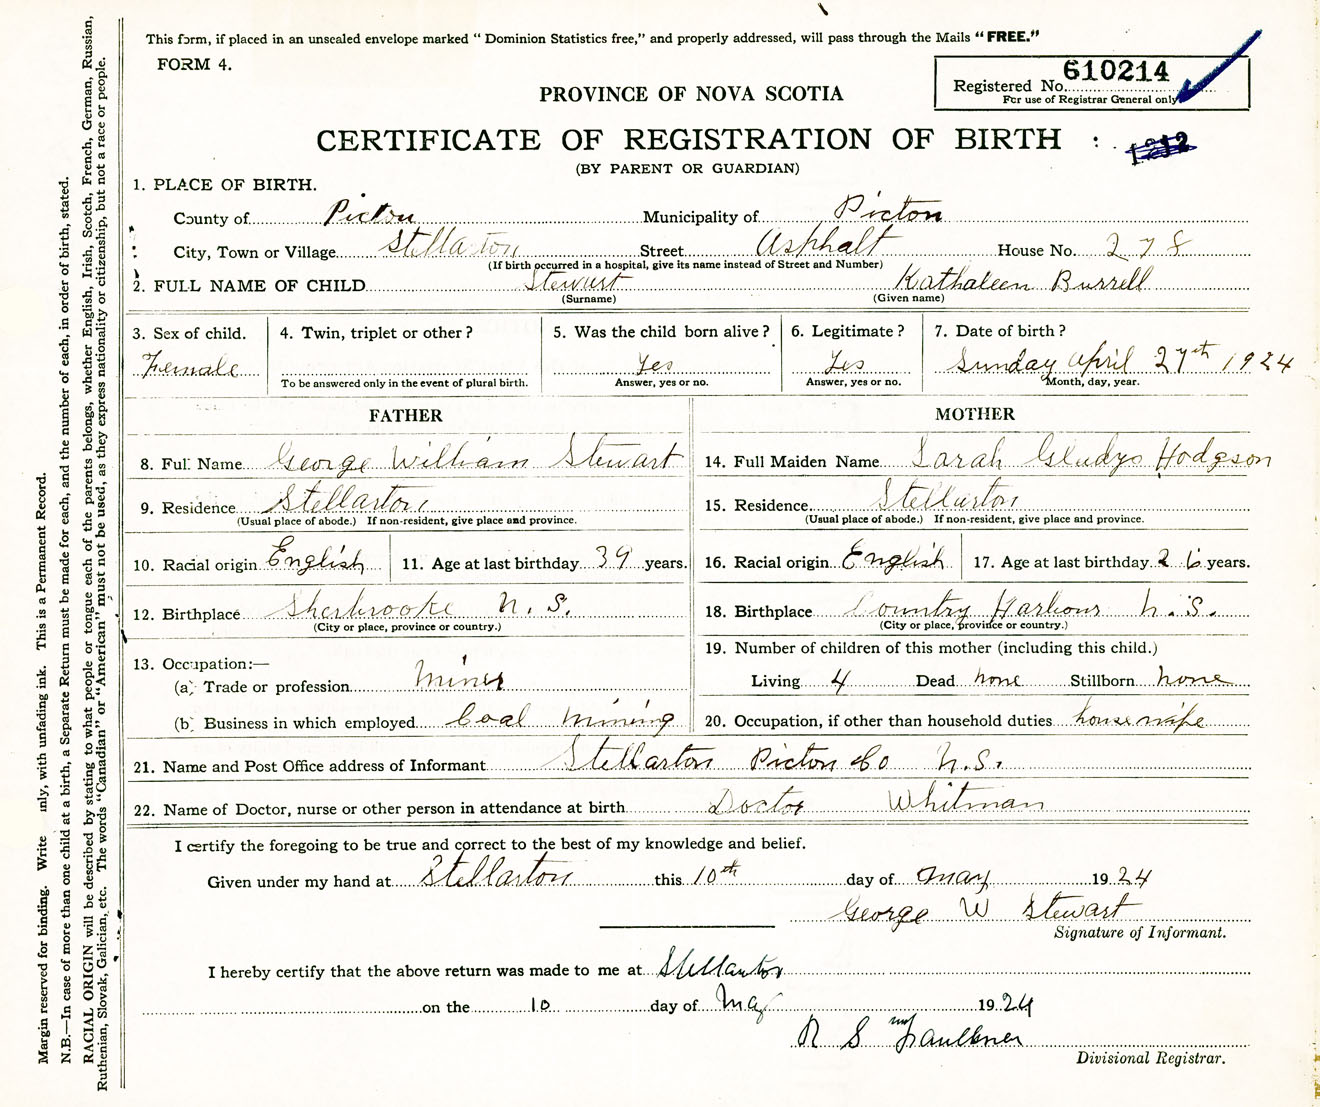 This form, if placed in an unsealed envelope marked " Dominion Statistics free," and properly addressed, will pass through the Mails "FREE."
FORM 4.
Registered No. 610214
For use of Registrar General only
PROVINCE OF NOVA SCOTIA
CERTIFICATE OF REGISTRATION OF BIRTH :
1212
(BY PARENT OR GUARDIAN)
1. PLACE OF BIRTH.
County of Picton Municipality of Picton
City, Town or Village Stellarton Street Asphalt House No. 278
(If birth occurred in a hospital, give its name instead of Street and Number)
2. FULL NAME OF CHILD Stewart Kathaleen Burrell
(Surname) (Given name)
3. Sex of child. 4. Twin, triplet or other ? 5. Was the child born alive ? 6. Legitimate ? 7. Date of birth ?
Female Yes Yes Sunday April 27th 1924
To be answered only in the event of plural birth. Answer, yes or no. Answer, yes or no. Month, day, year.
FATHER MOTHER
8. Full Name George William Stewart 14. Full Maiden Name Sarah Gladys Hodgson
9. Residence Stellarton 15. Residence Stellarton
(Usual place of abode.) If non-resident, give place and province. (Usual place of abode.) If non-resident, give place and province.
10. Racial origin English 11. Age at last birthday 39 years. 16. Racial origin English 17. Age at last birthday 26 years.
12. Birthplace Sherbrooke N. S. 18. Birthplace Country Harbour N. S.
(City or place, province or country.) (City or place, province or country.)
13. Occupation:— 19. Number of children of this mother (including this child.)
(a) Trade or profession Miner Living 4 Dead none Stillborn none
(b) Business in which employed Coal mining 20. Occupation, if other than household duties housewife
21. Name and Post Office address of Informant Stellarton Picton Co N.S.
22. Name of Doctor, nurse or other person in attendance at birth Doctor Whitman
I certify the foregoing to be true and correct to the best of my knowledge and belief.
Given under my hand at Stellarton this 10th day of May 1924
George W Stewart
Signature of Informant.
I hereby certify that the above return was made to me at Stellarton
on the 10 day of May 1924
R S Faulkner
Divisional Registrar.
Margin reserved for binding. Write only, with unfading ink. This is a Permanent Record.
N.B.—In case of more than one child at a birth, a Separate Return must be made for each, and the number of each, in order of birth, stated.
RACIAL ORIGIN will be described by stating to what people or tongue each of the parents belongs, whether English, Irish, Scotch, French, German, Russian,
Ruthenian, Slovak, Galician, etc. The words "Canadian" or "American" must not be used, as they express nationality or citizenship, but not a race or people.